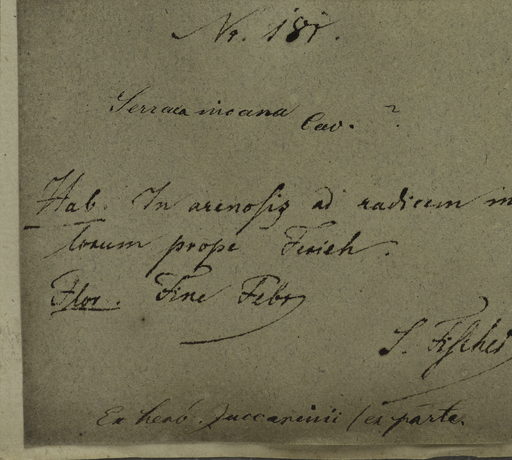 Nr. 181.
Serraea incana Cav. ?
Hab. In arenosis ad radicem m
torum prope Ferieh.
Flor. Fine Febr
S. Fischer
Ex herb. Zuccarinii (ex parte.